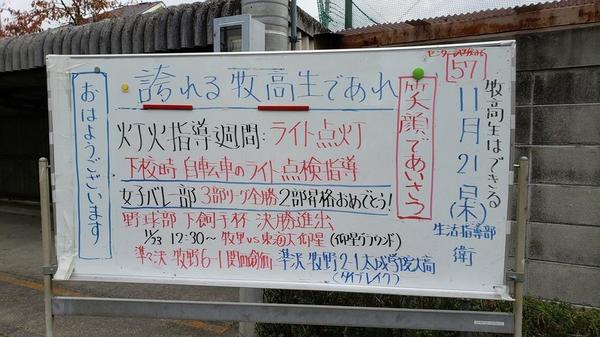 センター試験まで
57
牧高生はできる
11月21日(木)
生活指導部
衛
笑顔であいさつ
誇れる牧高生であれ
灯火指導週間:ライト点灯
下校時 自転車のライト点検指導
女子バレー部 3部リーグ全勝 2部昇格おめでとう!
野球部 下飼手杯 決勝進出
11/23 12:30~ 牧野 vs 東海大仰星 (仰星グラウンド)
準々決 牧野 6-1 関西創価 準決 牧野 2-1 太成学院大高
(タイブレイク)
おはようございます